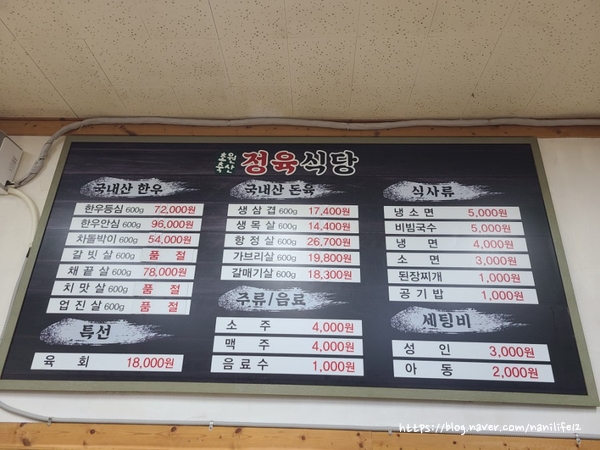 초원
축산
정육식당
국내산 한우
한우등심 600g 72,000원
한우안심 600g 96,000원
차돌박이 600g 54,000원
갈빗살 600g 품절
채끝살 600g 78,000원
치맛살 600g 품절
업진살 600g 품절
특선
육회 18,000원
국내산 돈육
생삼겹 600g 17,400원
생목살 600g 14,400원
항정살 600g 26,700원
가브리살 600g 19,800원
갈매기살 600g 18,300원
주류/음료
소주 4,000원
맥주 4,000원
음료수 1,000원
식사류
냉소면 5,000원
비빔국수 5,000원
냉면 4,000원
소면 3,000원
된장찌개 1,000원
공기밥 1,000원
세팅비
성인 3,000원
아동 2,000원
https://blog.naver.com/nanilife12